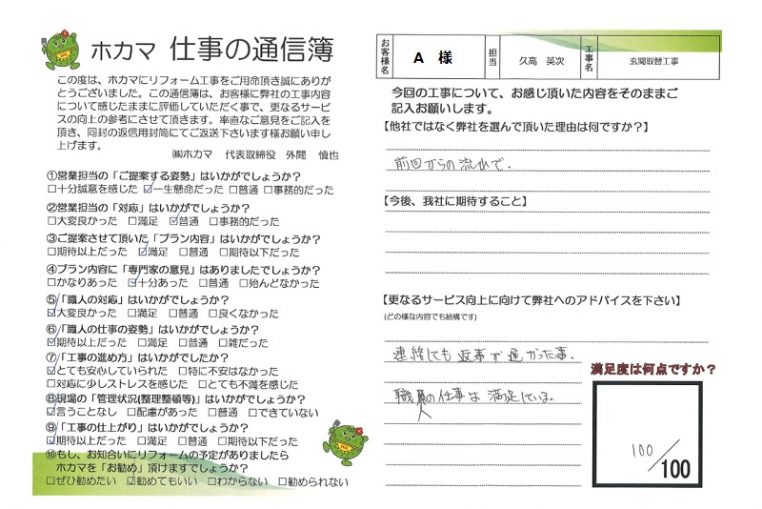 ホカマ 仕事の通信簿
この度は、ホカマにリフォーム工事をご用命頂き誠にありが
とうございました。この通信簿は、お客様に弊社の工事内容
について感じたままに評価していただく事で、更なるサービ
スの向上の参考にさせて頂きます。率直なご意見をご記入を
頂き、同封の返信用封筒にてご返送下さいます様お願い申し
上げます。
㈱ホカマ 代表取締役 外間 慎也
①営業担当の「ご提案する姿勢」はいかがでしょうか？
□十分誠意を感じた ☑一生懸命だった □普通 □事務的だった
②営業担当の「対応」はいかがでしょうか？
□大変良かった □満足 ☑普通 □事務的だった
③ご提案させて頂いた「プラン内容」はいかがでしょうか？
□期待以上だった ☑満足 □普通 □期待以下だった
④プラン内容に「専門家の意見」はありましたでしょうか？
□かなりあった ☑十分あった □普通 □殆んどなかった
⑤「職人の対応」はいかがでしょうか？
☑大変良かった □満足 □普通 □良くなかった
⑥「職人の仕事の姿勢」はいかがでしょうか？
☑期待以上だった □満足 □普通 □雑だった
⑦「工事の進め方」はいかがでしたか？
☑とても安心していられた □特に不安はなかった
□対応に少しストレスを感じた □とても不満を感じた
⑧現場の「管理状況(整理整頓等)」はいかがでしょうか？
☑言うことなし □配慮があった □普通 □できていない
⑨「工事の仕上がり」はいかがでしょうか？
☑期待以上だった □満足 □普通 □期待以下だった
⑩もし、お知合いにリフォームの予定がありましたら
ホカマを「お勧め」頂けますでしょうか？
□ぜひ勧めたい ☑勧めてもいい □わからない □勧められない
お客様名 A 様 担当 久高 英次 工事名 玄関取替工事
今回の工事について、お感じ頂いた内容をそのままご
記入お願いします。
【他社ではなく弊社を選んで頂いた理由は何ですか？】
前回からの流れで.
【今後、我社に期待すること】
【更なるサービス向上に向けて弊社へのアドバイスを下さい】
(どの様な内容でも結構です)
連絡しても返事が遅かった事.
職人の仕事は満足している.
満足度は何点ですか？
100/100